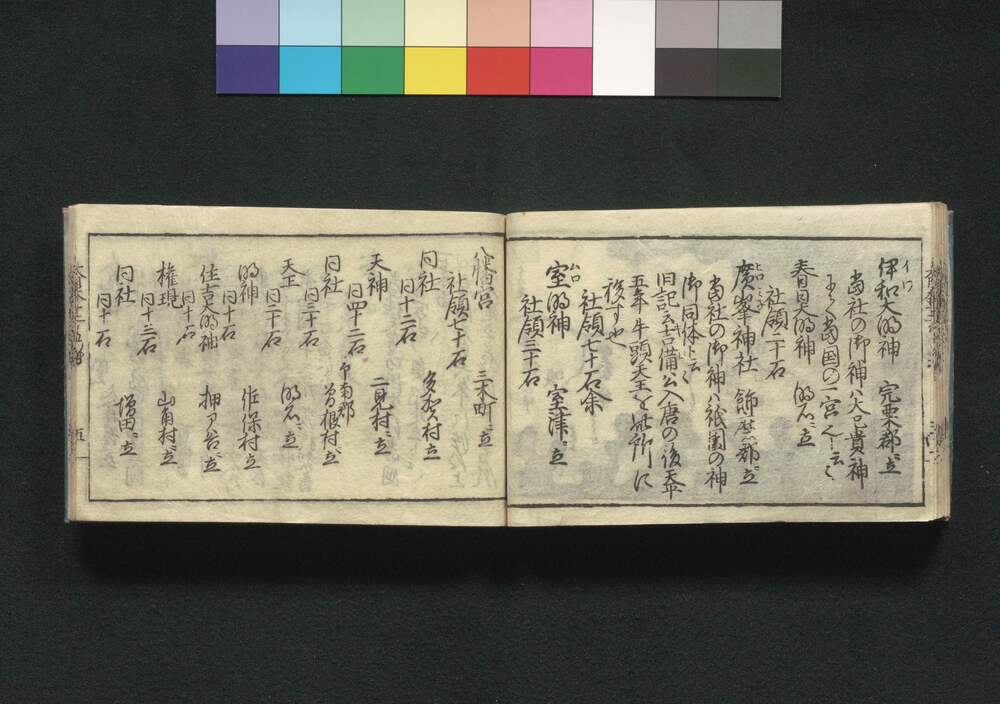 伊和大明神 宍粟郡ニ立
イワ
当社の御神ハ大己貴神
にて当国の一宮也と云々
春日大明神 明石ニ立
社領二十石
廣峯神社 飾磨郡ニ立
当社の御神ハ祇園の神
御同体と云々
旧記云吉備公入唐の後天平
五年牛頭天王を此所に
祝すと也
社領七十石余
室明神 室津ニ立
ムロ
社領三十石
八幡宮 三木町ニ立
社領七十石
同社
同十二石
天神 二見村ニ立
同四十二石
同社 印南郡 曽根村ニ立
同三十石
天王 明石ニ立
同二十石
明神 佐保村ニ立
同十石
住吉大明神 押部谷ニ立
同十石
権現 山角村ニ立
同十三石
同社 増田ニ立
同十石